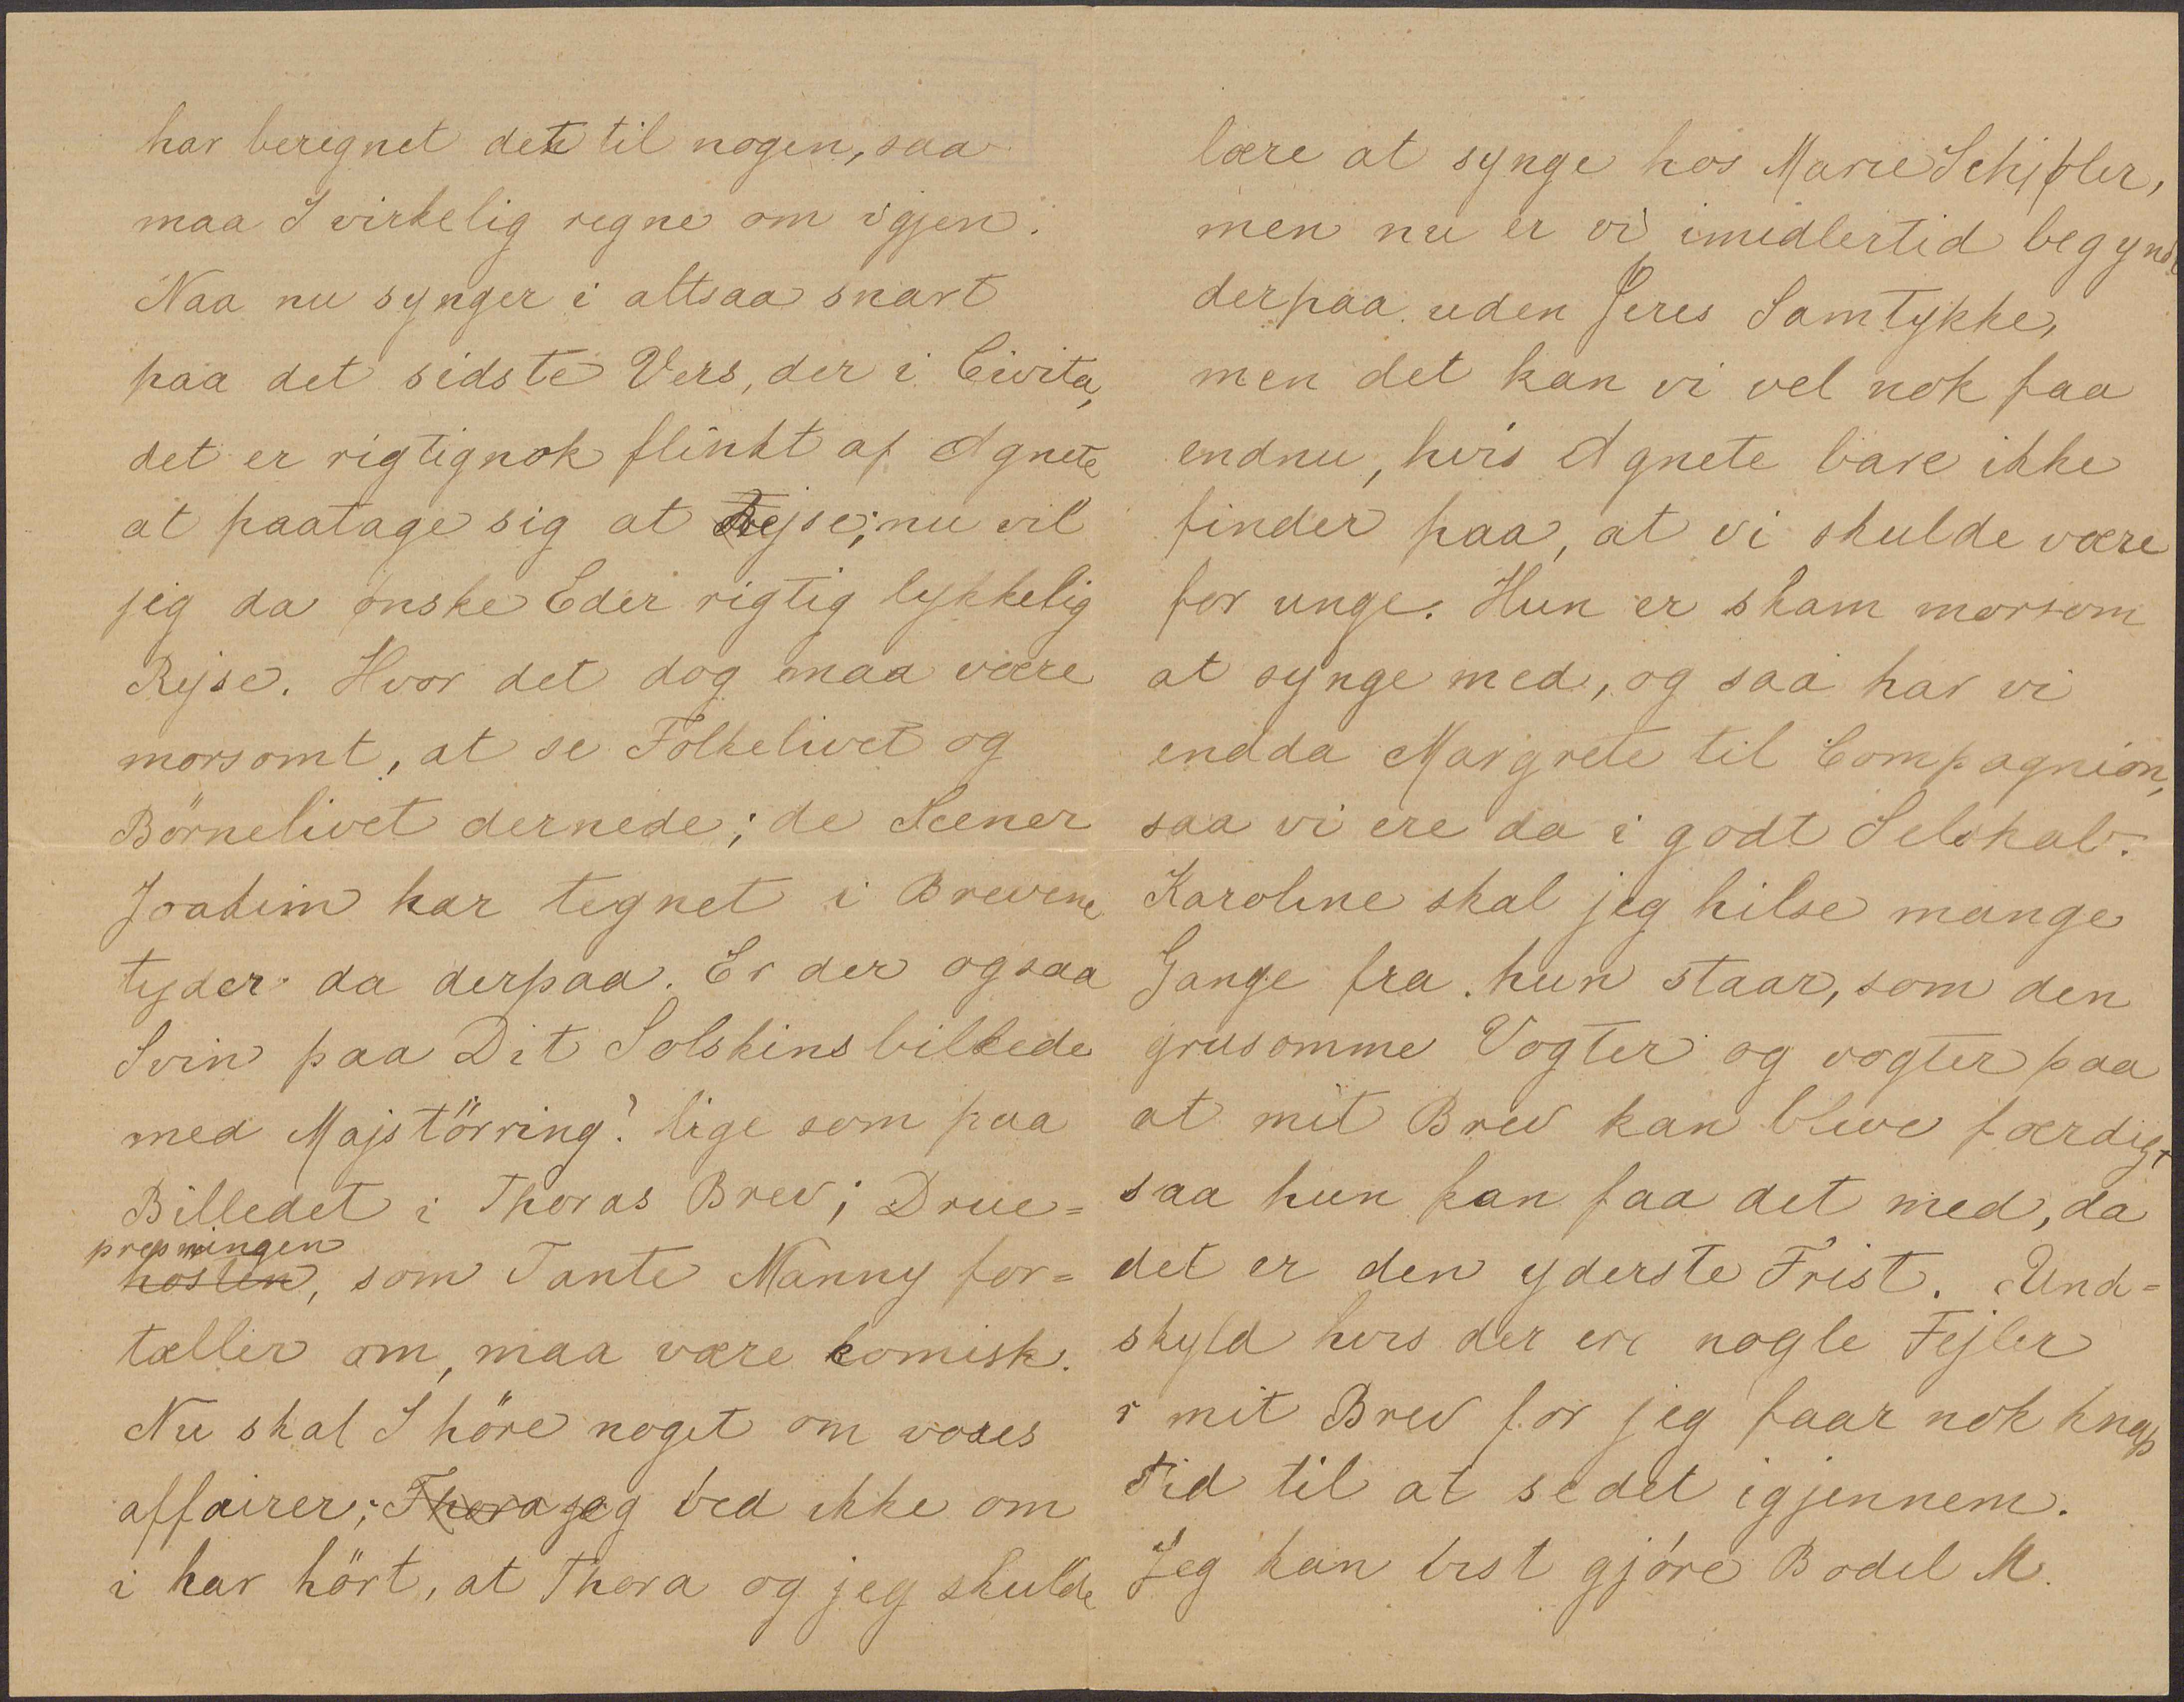 har beregnet dette til nogen, saa
maa I virkelig regne om igjen.
Naa nu synger i altsaa snart
paa det sidste Vers, der i Civita,
det er rigtignok flinkt af Agnete
at paatage sig at Rejse; nu vil
jeg da ønske Eder rigtig lykkelig
Rejse. Hvor det dog maa være
morsomt, at se Folkelivet og
Börnelivet dernede; de Scener
Joakim har tegnet i Brevene
tyder da derpaa. Er der ogsaa
Svin paa Dit Solskinsbillede
med Majstörring? lige som paa
Billedet i Thoras Brev; Drue=
presningen
hosten, som Tante Nanny for=
tæller om, maa være komisk.
Nu skal I höre noget om vores
affairer; Thora jeg ved ikke om
i har hört, at Thora og jeg skulde
lære at synge hos Marie Schjøler,
men nu er vi imidlertid begyndt
derpaa uden Jeres Samtykke,
men det kan vi vel nok faa
endnu, hvis Agnete bare ikke
finder paa, at vi skulde være
for unge. Hun er skam morsom
at synge med, og saa har vi
endda Margrete til Compagnion,
saa vi ere da i godt Selskab.
Karoline skal jeg hilse mange
Gange fra. hun staar, som den
grusomme Vogter og vogter paa
at mit Brev kan blive færdigt
saa hun kan faa det med, da
det er den yderste Frist. Und=
skyld hvis der ere nogle Fejler
i mit Brev for jeg faar nok knap
Tid til at se det igjennem.
Jeg kan trst gjöre Bodil M.